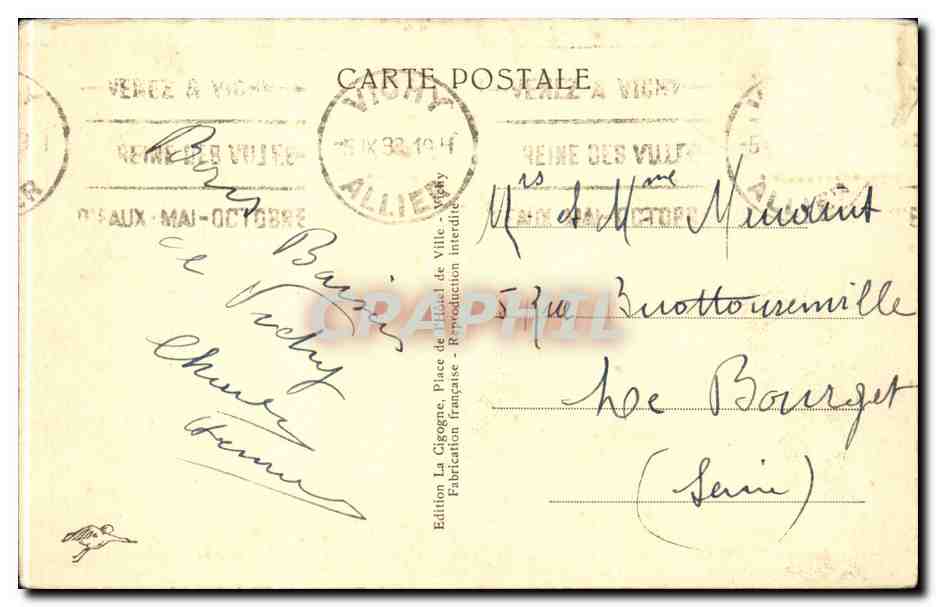 CARTE POSTALE
VENEZ A VICHY
REINE DES VILLES
D'EAUX·MAI-OCTOBRE
VICHY
-5 IX 38 19 H
ALLIER
VENEZ A VICHY
REINE DES VILLES
D'EAUX MAI-OCTOBRE
Bons
Baisers
de Vichy
Edition La Cigogne, Place de l'Hôtel de Ville - Vichy
Fabrication française - Reproduction interdite
Mrs et Mme
5 Rue
Le Bourget
(Seine)
CRAPHIL